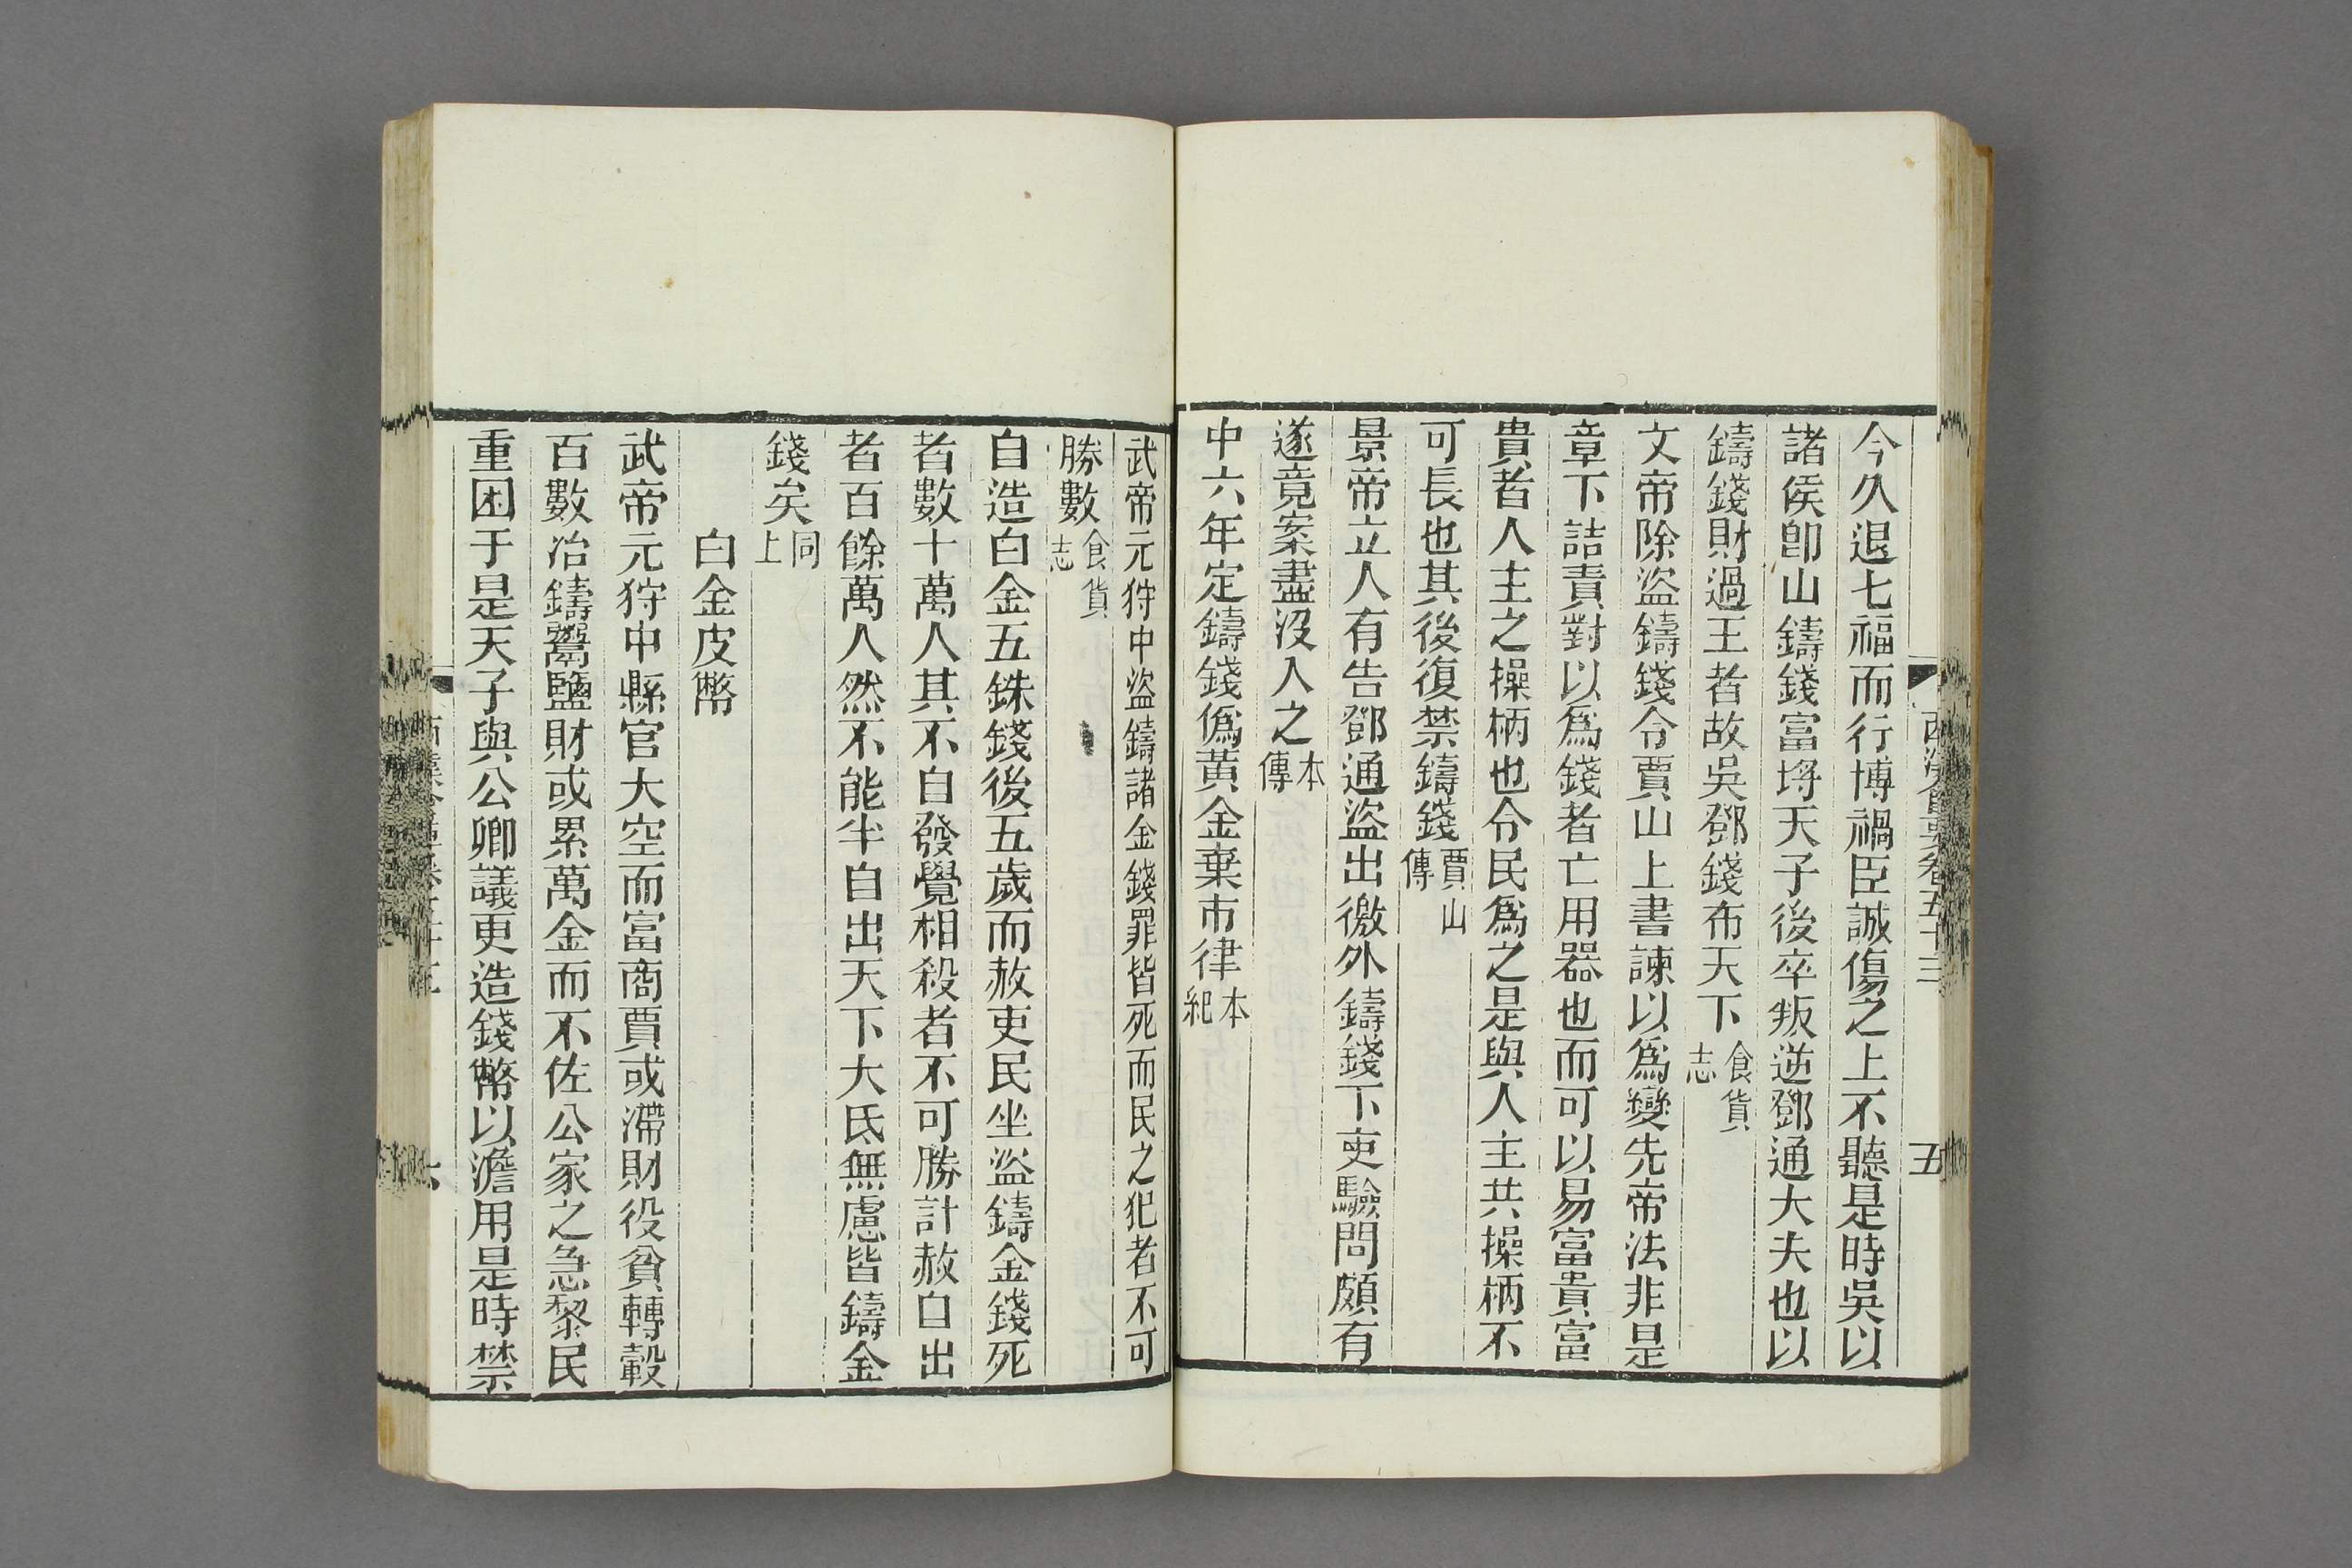 今久退七福而行博禍臣誠傷之上不聽是時吳以
諸侯卽山鑄錢富埒天子後卒叛逆鄧通大夫也以
鑄錢財過王者故吳鄧錢布天下食貨志
文帝除盜鑄錢令賈山上書諫以爲變先帝法非是
章下詰責對以爲錢者亡用器也而可以易富貴富
貴者人主之操柄也令民爲之是與人主共操柄不
可長也其後復禁鑄錢賈山傳
景帝立人有告鄧通盜出徼外鑄錢下吏驗問頗有
遂竟案盡沒入之本傳
中六年定鑄錢僞黃金棄市律本紀
武帝元狩中盜鑄諸金錢罪皆死而民之犯者不可
勝數食貨志
自造白金五銖錢後五歲而赦吏民坐盜鑄金錢死
者數十萬人其不自發覺相殺者不可勝計赦自出
者百餘萬人然不能半自出天下大氐無慮皆鑄金
錢矣同上
白金皮幣
武帝元狩中縣官大空而富商賈或滯財役貧轉轂
百數冶鑄鬻鹽財或累萬金而不佐公家之急黎民
重困于是天子與公卿議更造錢幣以澹用是時禁
西漢會要卷五十三
五